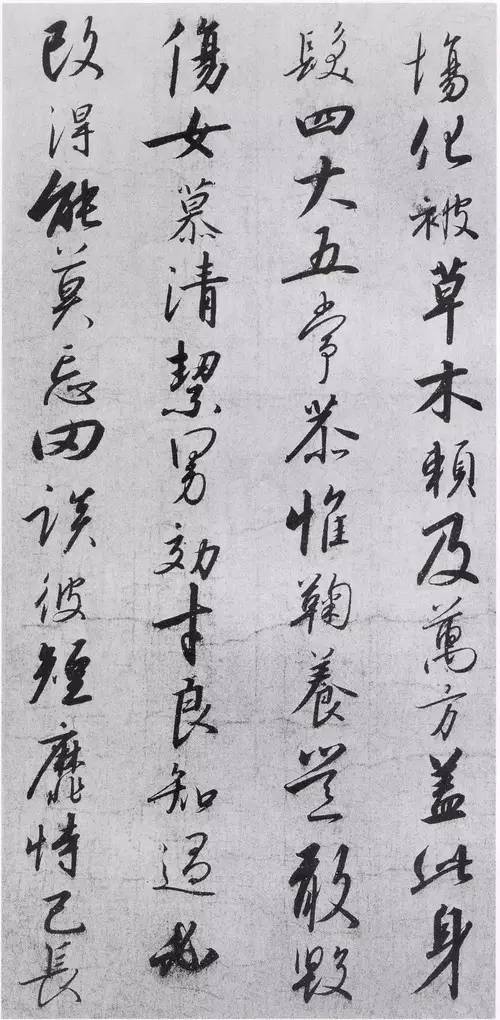 場化被草木賴及萬方盖此身
髮四大五常恭惟鞠養豈敢毀
傷女慕清潔男效才良知過必
改得能莫忘罔談彼短靡恃己長